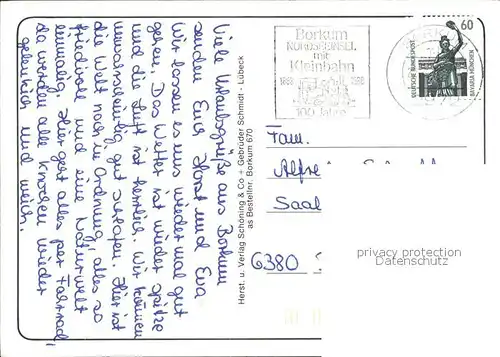 Viele Urlaubsgrüße aus Borkum
senden Euch Horst und Eva
Wir lassen es uns wieder mal gut
gehen. Das Wetter ist wieder spitze
und die Luft ist herrlich. Wir können
unwahrscheinlig gut schlafen. Hier ist
die Welt noch in Ordnung, alles so
friedvoll und eine Naturwelt
einmalig. Hier geht alles per Fahrrad,
da werden alle Knochen wieder
gelenkich und weich.
Herst. u. Verlag Schöning & Co + Gebrüder Schmidt - Lübeck
as Bestellnr. Borkum 670
Borkum
NORDSEEINSEL
mit
Kleinbahn
1888 1988
100 Jahre
60
DEUTSCHE BUNDESPOST
BAVARIA MÜNCHEN
Fam.
Alfre
Saal
6380
privacy protection
Datenschutz